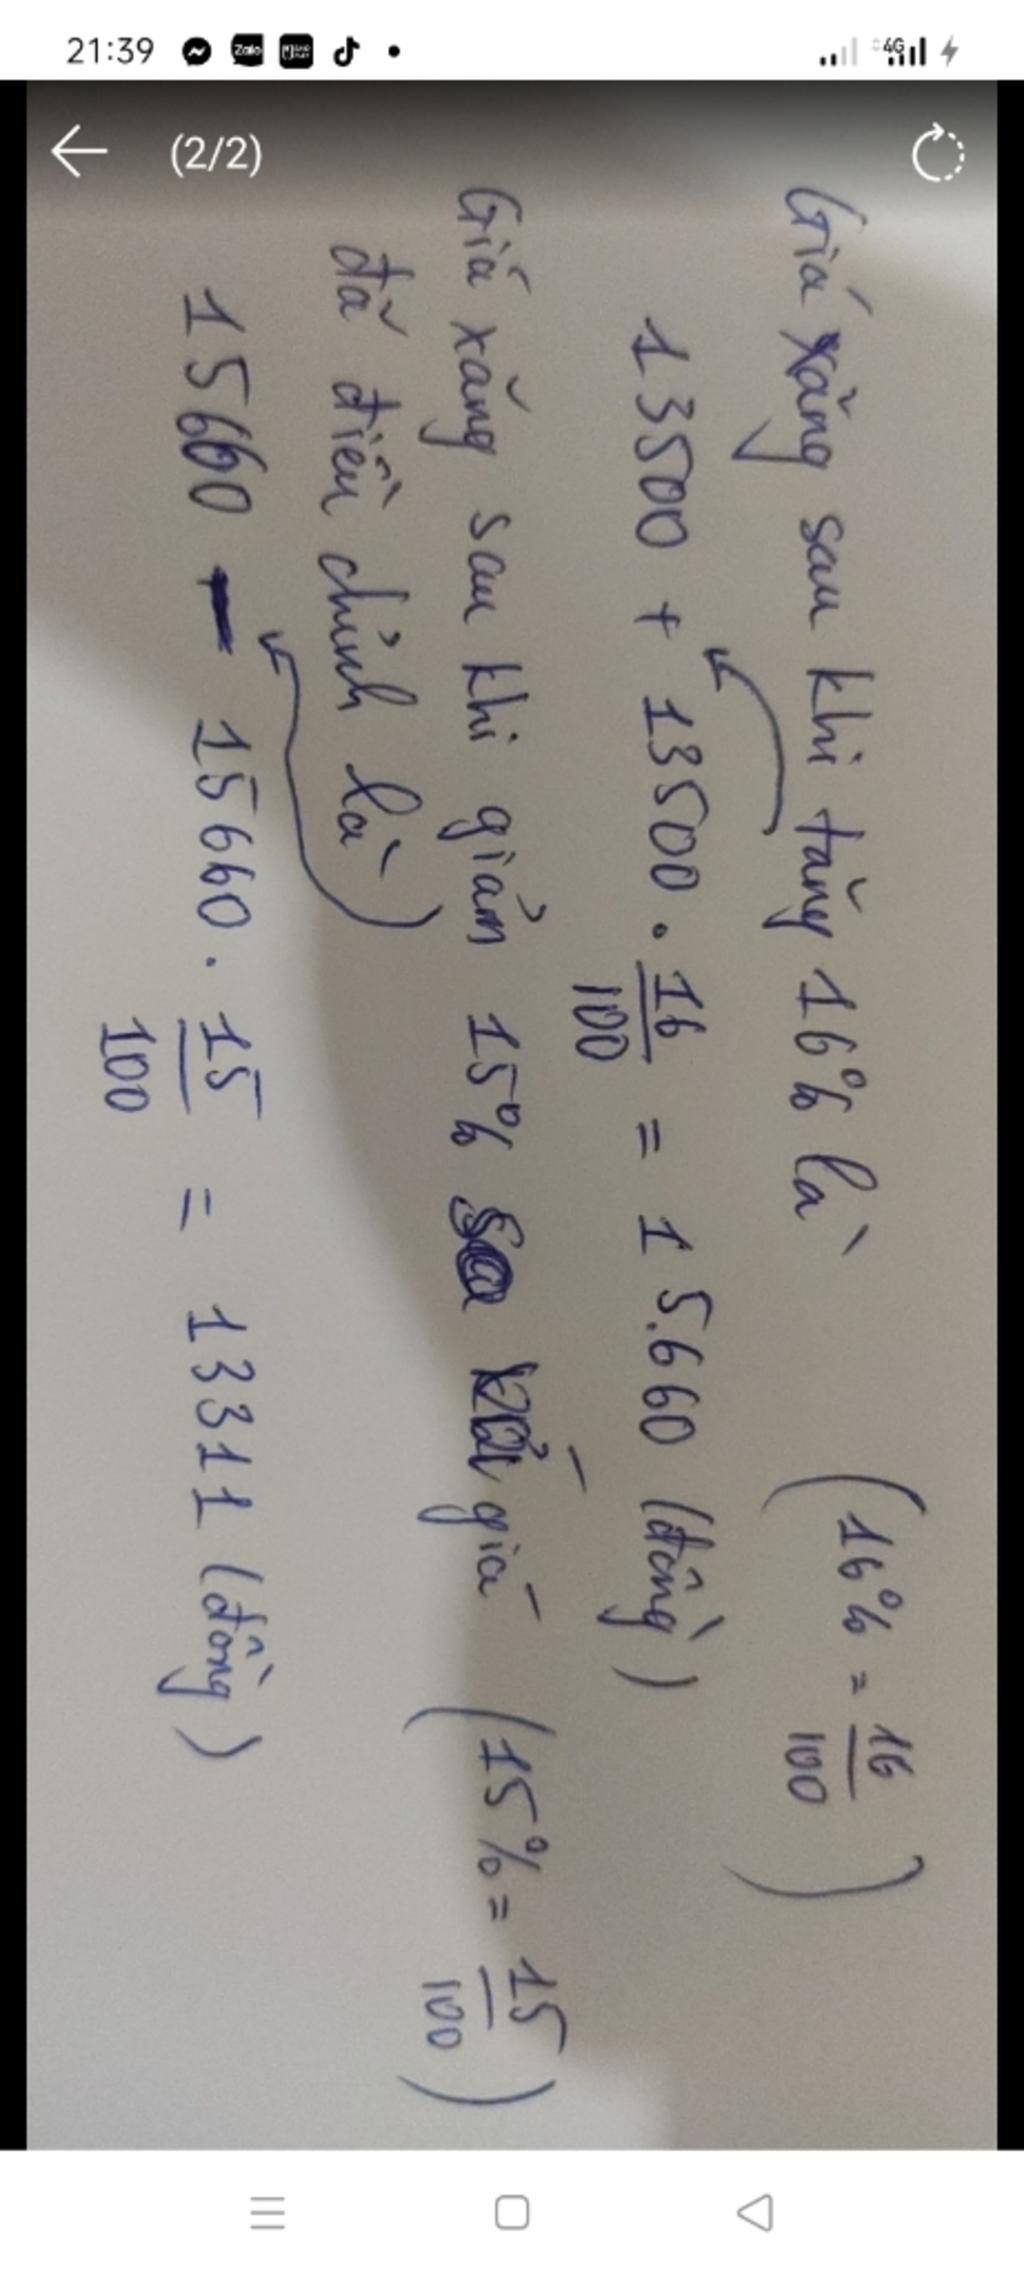 21:39
Zalo
4G
(2/2)
Giá xăng sau khi tăng 16% là (16% = 16/100)
13500 + 13500 . 16/100 = 15.660 (đồng)
Giá xăng sau khi giảm 15% giá (15% = 15/100)
đã điều chỉnh là
15660 - 15660 . 15/100 = 13311 (đồng)